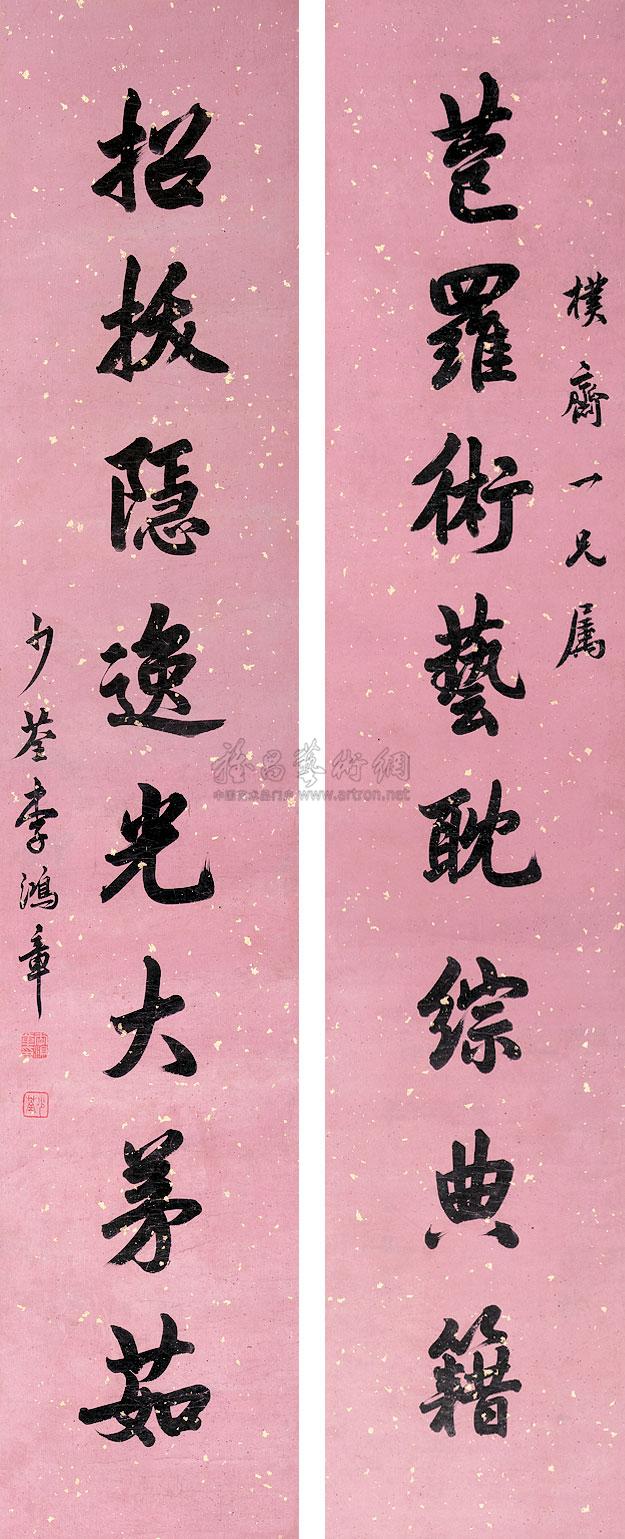 樸齋一兄属
苞羅術藝耽綜典籍
招拔隱逸光大茅茹
少荃李鴻章
雅昌藝術網
中国艺术品门户 www.artron.net